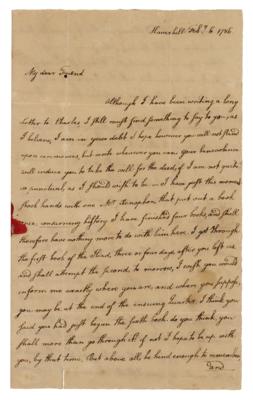 Haverhill Feb.y 6 1786
My dear Friend
Although I have been writing a long
Letter to Charles, I still must find something to say to you, as
I believe, I am in your debt I hope however you will not stand
upon ceremonies, but write whenever you can your benevolence
will induce you to take the will for the deed, if I am not quite
so punctual, as I should wish to be. I have just this moment
shook hands with one Mr Xenophon, that put out a book
once, concerning history I have finished four books, and shall
therefore have nothing more to do with him here. I got through
the first book of the Iliad, three or four days after you left us
and shall attempt the second to morrow, I wish you would
inform me exactly where you are, and whom you suppose,
you may be at the end of the ensuing Quarter. I think you
said you had just begun the fourth book. do you think, you
shall more than go through it if not I hope to be up with
you, by that time. But above all, be kind enough to remember
and